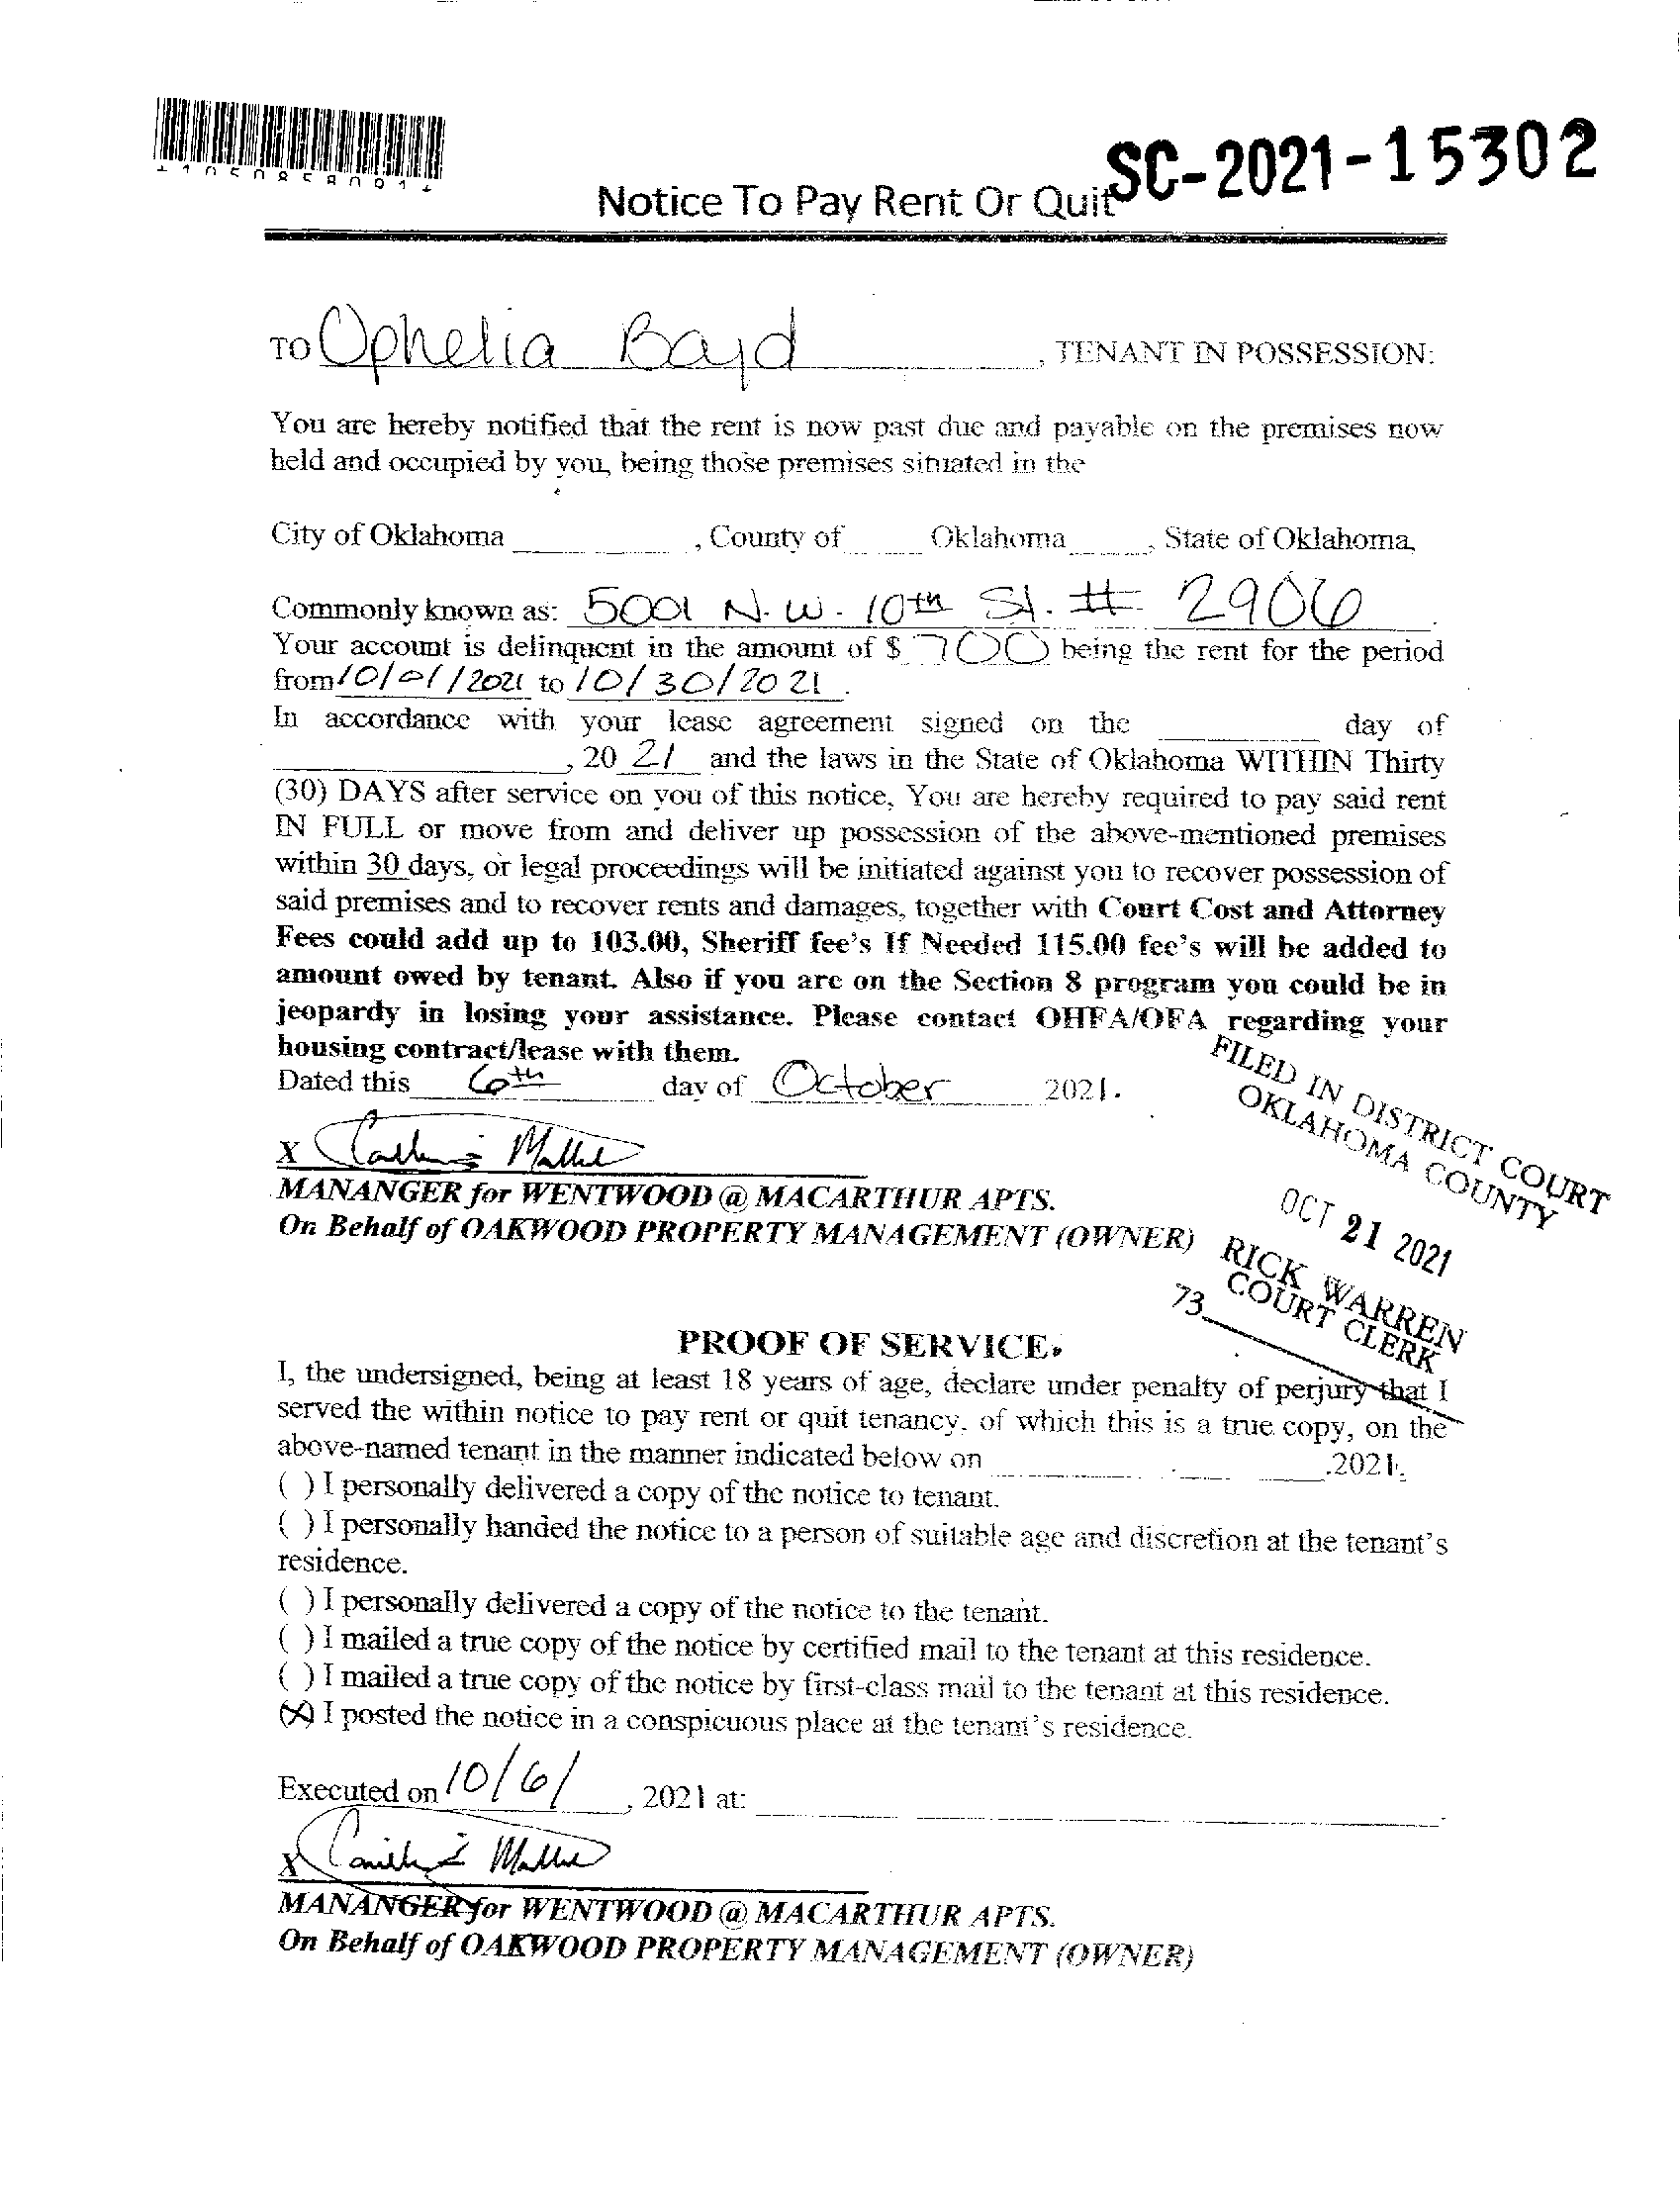 SC-2021-15302
Notice To Pay Rent Or Quit
TO Ophelia Bayd, TENANT IN POSSESSION:
You are hereby notified that the rent is now past due and payable on the premises now
held and occupied by you, being those premises situated in the
City of Oklahoma , County of Oklahoma , State of Oklahoma,
Commonly known as: 5001 N.W. 10th St. # 2906.
Your account is delinquent in the amount of $ 700 being the rent for the period
from 10/01/2021 to 10/30/2021.
In accordance with your lease agreement signed on the day of
, 20 21 and the laws in the State of Oklahoma WITHIN Thirty
(30) DAYS after service on you of this notice, You are hereby required to pay said rent
IN FULL or move from and deliver up possession of the above-mentioned premises
within 30 days, or legal proceedings will be initiated against you to recover possession of
said premises and to recover rents and damages, together with Court Cost and Attorney
Fees could add up to 103.00, Sheriff fee's If Needed 115.00 fee's will be added to
amount owed by tenant. Also if you are on the Section 8 program you could be in
jeopardy in losing your assistance. Please contact OHFA/OFA regarding your
housing contract/lease with them.
Dated this 6th day of October 2021.
FILED IN DISTRICT COURT
OKLAHOMA COUNTY
OCT 21 2021
RICK WARREN
COURT CLERK
73
X
MANANGER for WENTWOOD @ MACARTHUR APTS.
On Behalf of OAKWOOD PROPERTY MANAGEMENT (OWNER)
PROOF OF SERVICE.
I, the undersigned, being at least 18 years of age, declare under penalty of perjury that I
served the within notice to pay rent or quit tenancy, of which this is a true copy, on the
above-named tenant in the manner indicated below on .2021.
( ) I personally delivered a copy of the notice to tenant.
( ) I personally handed the notice to a person of suitable age and discretion at the tenant's
residence.
( ) I personally delivered a copy of the notice to the tenant.
( ) I mailed a true copy of the notice by certified mail to the tenant at this residence.
( ) I mailed a true copy of the notice by first-class mail to the tenant at this residence.
(X) I posted the notice in a conspicuous place at the tenant's residence.
Executed on 10/6/ , 2021 at:
X
MANANGER for WENTWOOD @ MACARTHUR APTS.
On Behalf of OAKWOOD PROPERTY MANAGEMENT (OWNER)